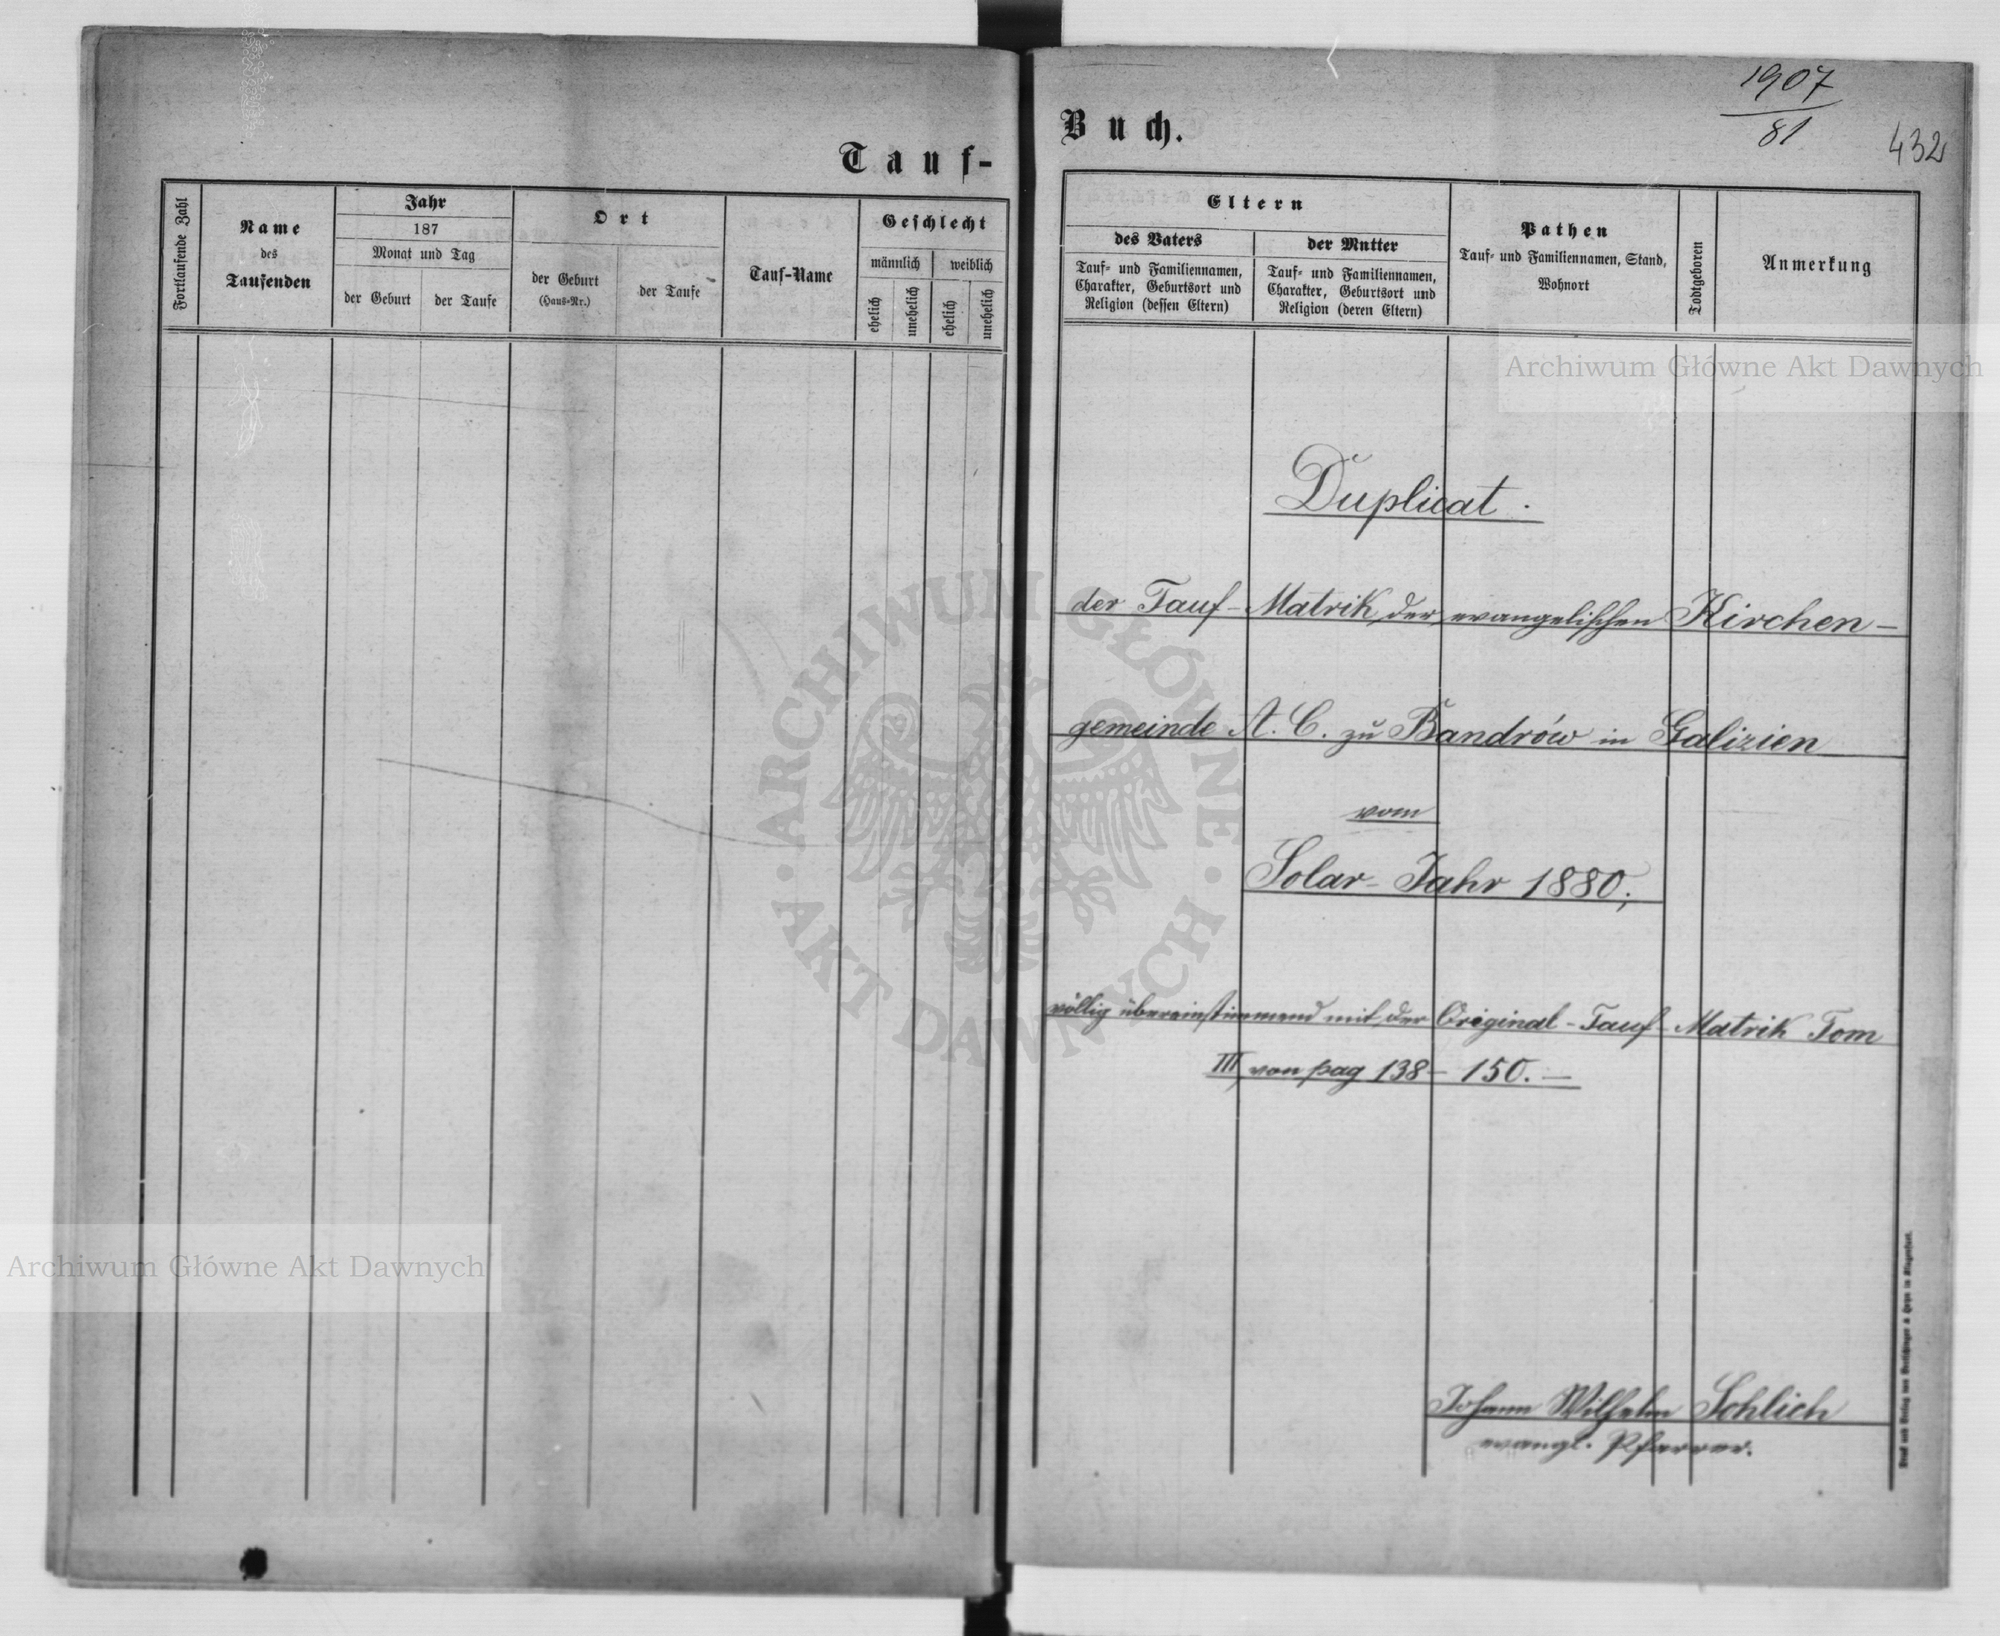 Tauf-
Fortlaufende Zahl
Name
des
Taufenden
Jahr
187
Monat und Tag
der Geburt
der Taufe
Ort
der Geburt
(Haus-Nr.)
der Taufe
Tauf-Name
Geschlecht
männlich
weiblich
ehelich
unehelich
ehelich
unehelich
Buch.
1907
81
432
Eltern
des Vaters
Tauf- und Familiennamen,
Charakter, Geburtsort und
Religion (dessen Eltern)
der Mutter
Tauf- und Familiennamen,
Charakter, Geburtsort und
Religion (deren Eltern)
Pathen
Tauf- und Familiennamen, Stand,
Wohnort
Todtgeboren
Anmerkung
Duplicat.
der Tauf-Matrik der evangelischen Kirchen-
gemeinde A. C. zu Bandrów in Galizien
vom
Solar-Jahr 1880;
völlig übereinstimmend mit der Original-Tauf-Matrik Tom
III von pag 138 - 150. -
Johann Wilhelm Schlich
evangl. Pfarrer.
Archiwum Główne Akt Dawnych
Archiwum Główne Akt Dawnych
ARCHIWUM GŁÓWNE
AKT DAWNYCH